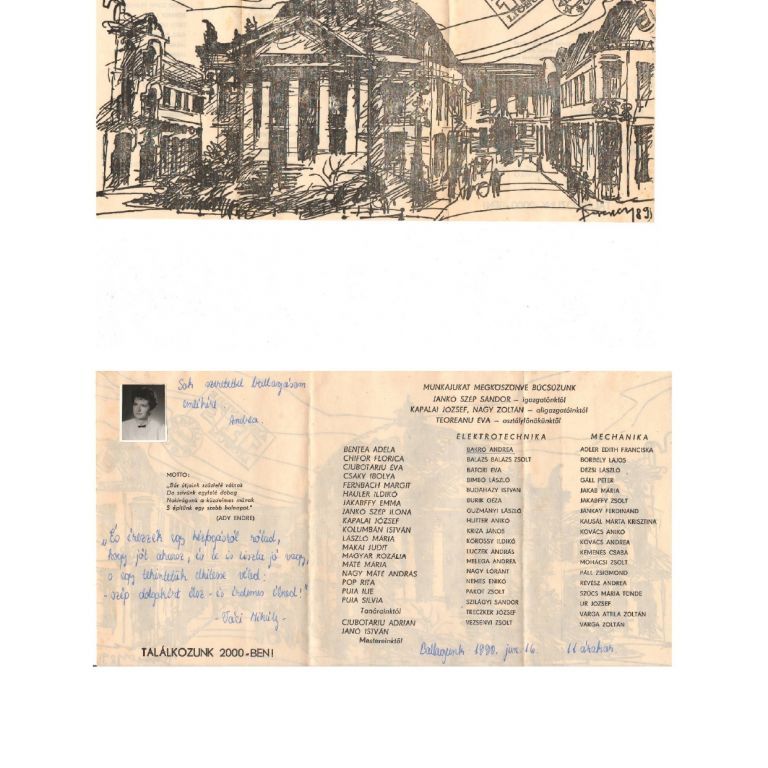 89
Sok szeretettel ballagásom
emlékére
Andrea.
MOTTO:
„Bár útjaink százfelé váltak
De szívünk egyfelé dobog
Nekivágunk a küzdelmes mának
S építünk egy szebb holnapot."
(ADY ENDRE)
„És érezzék egy kézfogásról rólad,
hogy jót akarsz, és te is tiszta jó vagy,
s egy tekintetük elhitesse véled:
-szép dologkért élsz - és érdemes élned!"
- Váci Mihály -
TALÁLKOZUNK 2000-BEN!
MUNKÁJUKAT MEGKÖSZÖNVE BÚCSÚZUNK
JANKÓ SZÉP SÁNDOR — igazgatónktól
KAPALAI JÓZSEF, NAGY ZOLTÁN — aligazgatóinktól
TEOREANU ÉVA — osztályfőnökünktől
BENȚEA ADELA
CHIFOR FLORICA
CIUBOTARIU ÉVA
CSÁKY IBOLYA
FERNBACH MARGIT
HAULER ILDIKÓ
JAKABFFY EMMA
JANKÓ SZÉP ILONA
KAPALAI JÓZSEF
KOLUMBÁN ISTVÁN
LÁSZLÓ MÁRIA
MAKAI JUDIT
MAGYAR ROZÁLIA
MÁTÉ MÁRIA
NAGY MÁTÉ ANDRÁS
POP RITA
PUIA ILIE
PUIA SILVIA
Tanárainktól
CIUBOTARIU ADRIAN
JANÓ ISTVÁN
Mestereinktől
ELEKTROTECHNIKA
BAKRÓ ANDREA
BALÁZS BALÁZS ZSOLT
BÁTORI ÉVA
BIMBÓ LÁSZLÓ
BUDAHÁZY ISTVÁN
BURIK GÉZA
GUZMÁNYI LÁSZLÓ
HUTTER ANIKÓ
KRIZA JÁNOS
KÖRÖSSY ILDIKÓ
LUCZEK ANDRÁS
MELEGA ANDREA
NAGY LÓRÁNT
NEMES ENIKŐ
PAKOT ZSOLT
SZILÁGYI SÁNDOR
TRECZKER JÓZSEF
VEZSENYI ZSOLT
MECHANIKA
ADLER EDITH FRANCISKA
BORBÉLY LAJOS
DEZSI LÁSZLÓ
GÁLL PÉTER
JAKAB MÁRIA
JAKABFFY ZSOLT
JANKAY FERDINAND
KAUSÁL MÁRTA KRISZTINA
KOVÁCS ANIKÓ
KOVÁCS ANDREA
KEMENES CSABA
MOHÁCSI ZSOLT
PÁLL ZSIGMOND
RÉVÉSZ ANDREA
SZŰCS MÁRIA TÜNDE
UR JÓZSEF
VARGA ATTILA ZOLTÁN
VARGA ZOLTÁN
Ballagunk 1990. jun. 16. 11 órakor.